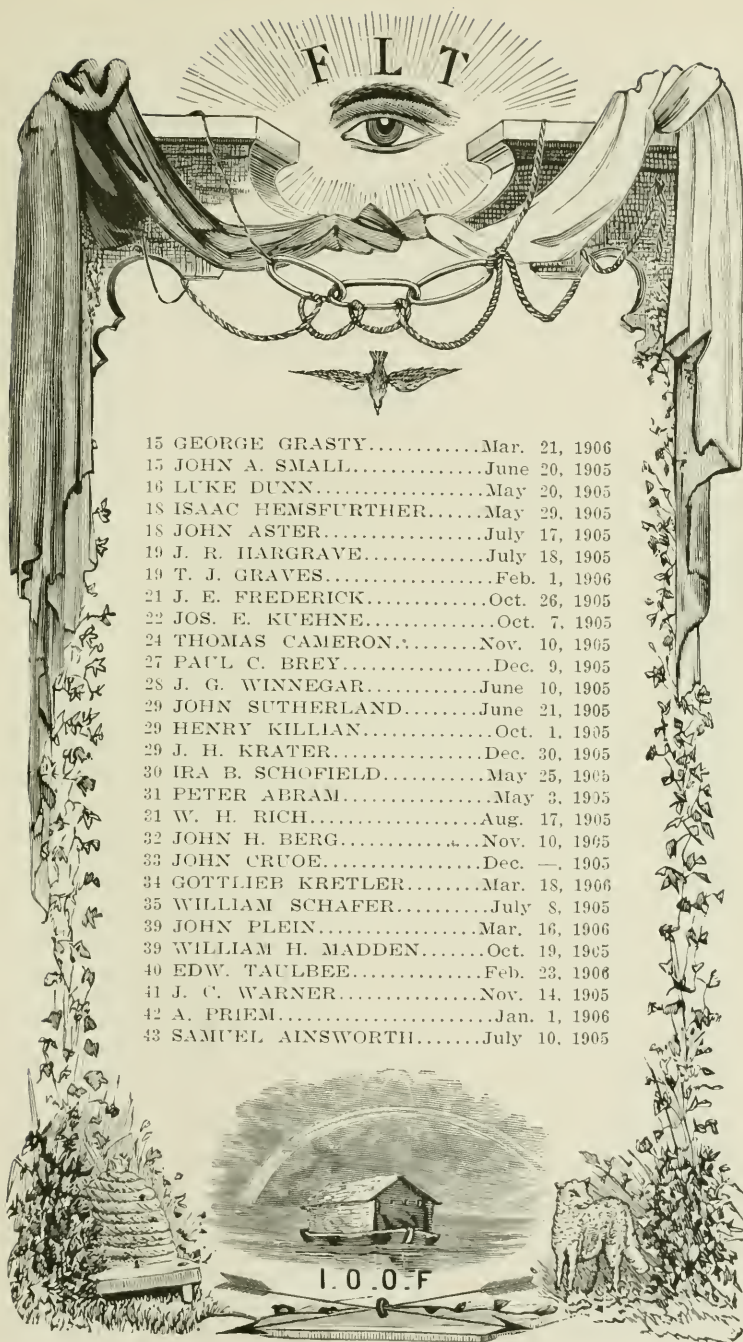 F L T
15 GEORGE GRASTY............Mar. 21, 1906
15 JOHN A. SMALL............June 20, 1905
16 LUKE DUNN................May 20, 1905
18 ISAAC HEMSFURTHER......May 29, 1905
18 JOHN ASTER...............July 17, 1905
19 J. R. HARGRAVE...........July 18, 1905
19 T. J. GRAVES................Feb. 1, 1906
21 J. E. FREDERICK...........Oct. 26, 1905
22 JOS. E. KUEHNE............Oct. 7, 1905
24 THOMAS CAMERON.........Nov. 10, 1905
27 PAUL C. BREY..............Dec. 9, 1905
28 J. G. WINNEGAR...........June 10, 1905
29 JOHN SUTHERLAND........June 21, 1905
29 HENRY KILLIAN.............Oct. 1, 1905
29 J. H. KRATER..............Dec. 30, 1905
30 IRA B. SCHOFIELD..........May 25, 1905
31 PETER ABRAM..............May 3, 1905
31 W. H. RICH................Aug. 17, 1905
32 JOHN H. BERG.............Nov. 10, 1905
33 JOHN CRUOE...............Dec. —, 1905
34 GOTTLIEB KRETLER........Mar. 18, 1906
35 WILLIAM SCHAFER.........July 8, 1905
39 JOHN PLEIN...............Mar. 16, 1906
39 WILLIAM H. MADDEN.......Oct. 19, 1905
40 EDW. TAULBEE.............Feb. 23, 1906
41 J. C. WARNER.............Nov. 14, 1905
42 A. PRIEM....................Jan. 1, 1906
43 SAMUEL AINSWORTH.......July 10, 1905
I.O.O.F